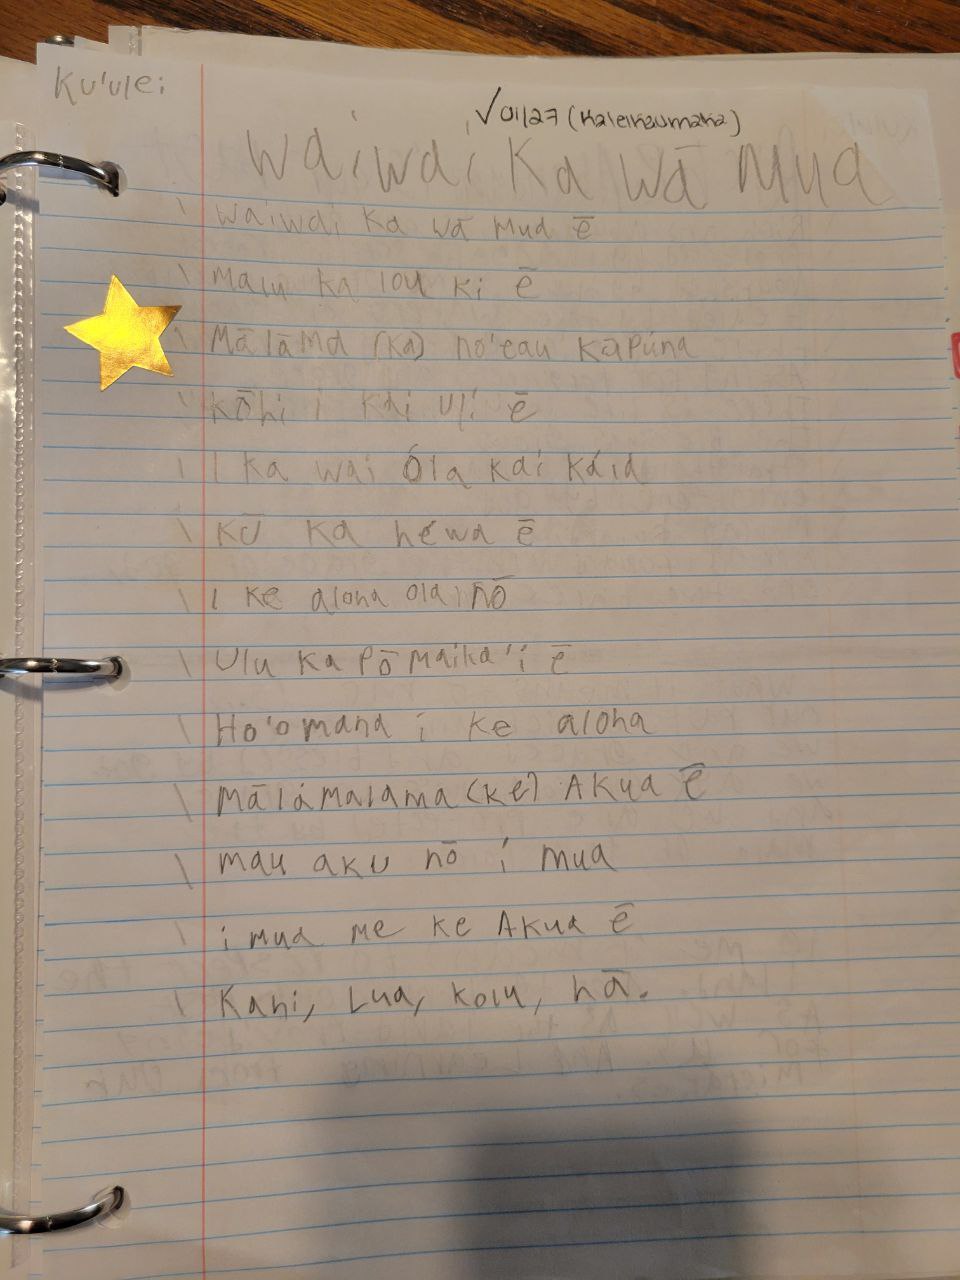 Ku'ulei
√01/27 (Kaleikaumaka)
Waiwai Ka Wā Mua
\ Waiwai Ka wā mua ē
\ Malu ka lou ki ē
\ Mālāma (ka) no'eau kāpúna
\ kōhi i kai uli ē
\ I ka wai Óla kai káia
\ Kū ka héwa ē
\ I ke aloha ola nō
\ Ulu ka Pōmaika'i ē
\ Ho'omana i ke aloha
\ Mālámalama (ke) Akua ē
\ mau aku nō i mua
\ i mua me ke Akua ē
\ Kahi, Lua, kolu, hā.